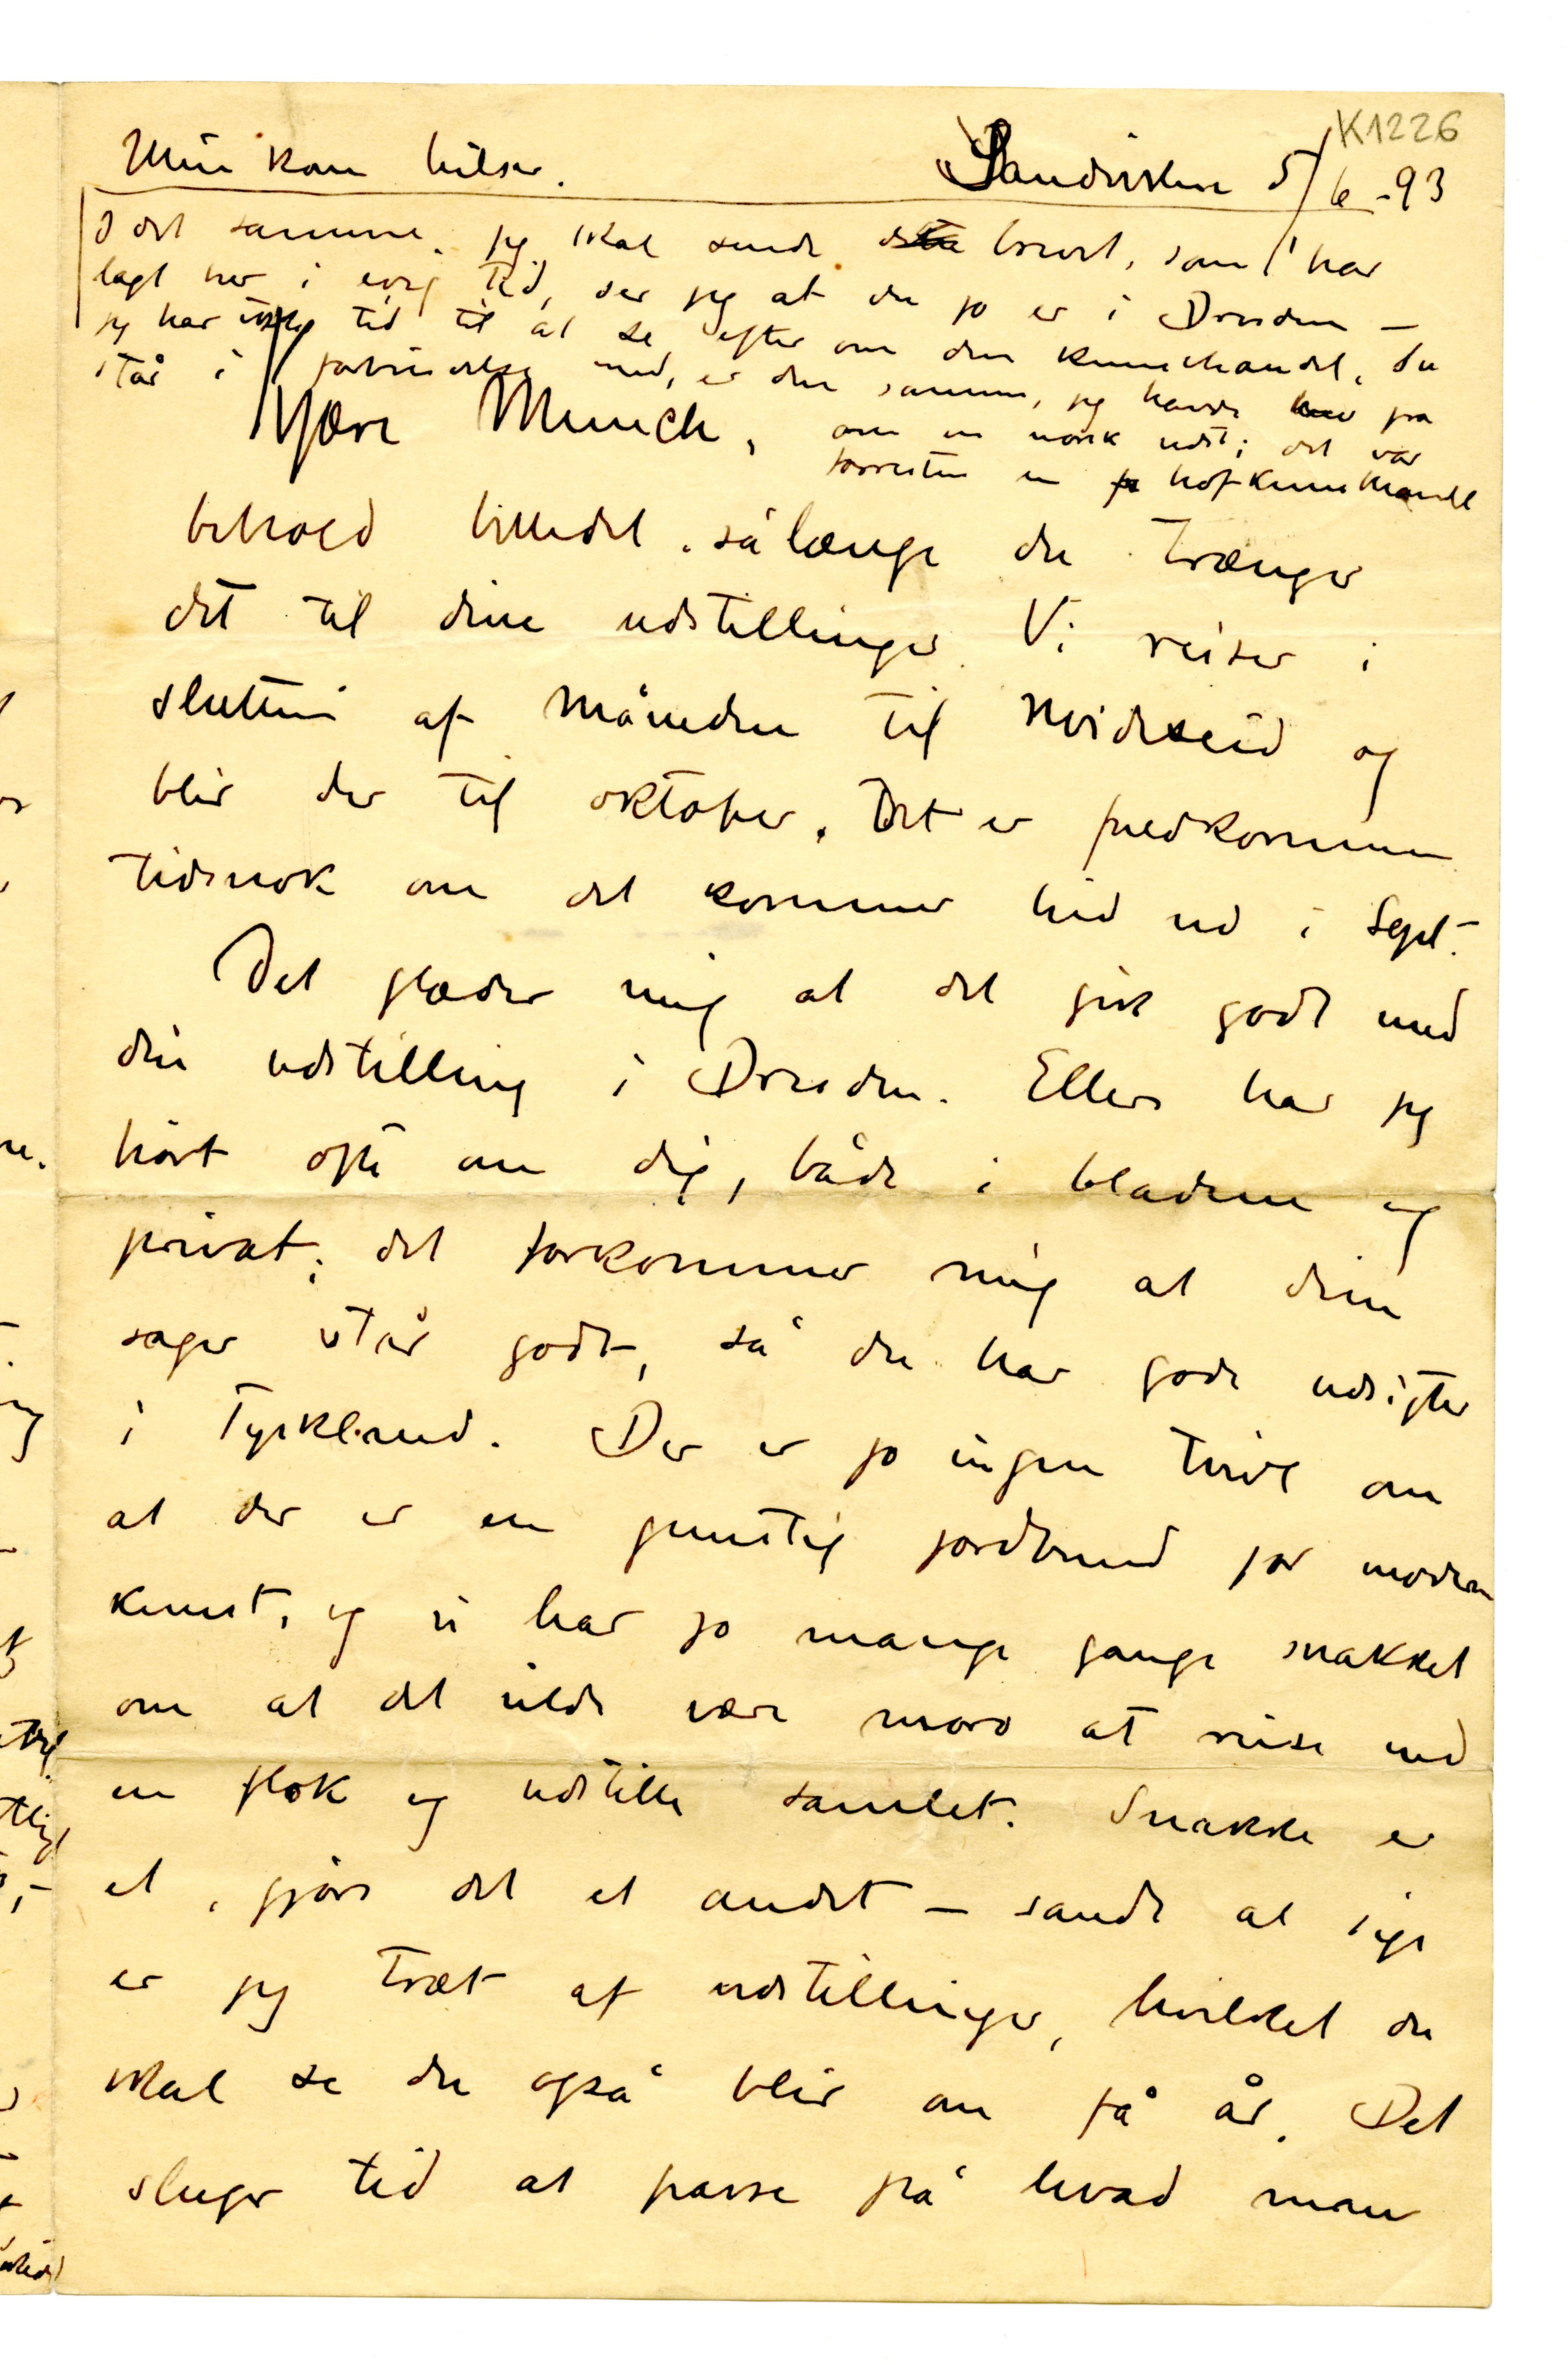 K1226
Min kone hilser.
Sandviken 5/6 -93
I det samme jeg skal sende brevet, som har
lagt her i evig tid, ser jeg at du jo er i Dresden –
jeg har ikke tid til at se efter om den kunsthandel, du
står i forbindelse med, er den samme, jeg havde fra
om en norsk udst; det var
forresten en hofkunsthandl
Kjære Munch,
behold billedet sålænge du trænger
det til dine udstillinger. Vi reiser i
slutten af måneden til Hvideseid og
blir der til oktober. Det er fuldkommen
tidsnok om det kommer hid ud i Sept.
Det glæder mig at det gik godt med
din udstilling i Dresden. Ellers har jeg
hørt ofte om dig, både i bladene og
privat; det forkommer mig at dine
sager står godt, så du har gode udsigter
i Tyskland. Der er jo ingen tvivl om
at der er en gunstig jordbund for moderne
kunst, og vi har jo mange gange snakket
om at det vilde være moro at reise ned
en flok og udstille samlet. Snakke er
et, gjøre det et andet – sandt at sige
er jeg træt af udstillinger, hvilket du
skal se du også blir om få år. Det
sluger tid at passe på hvad man